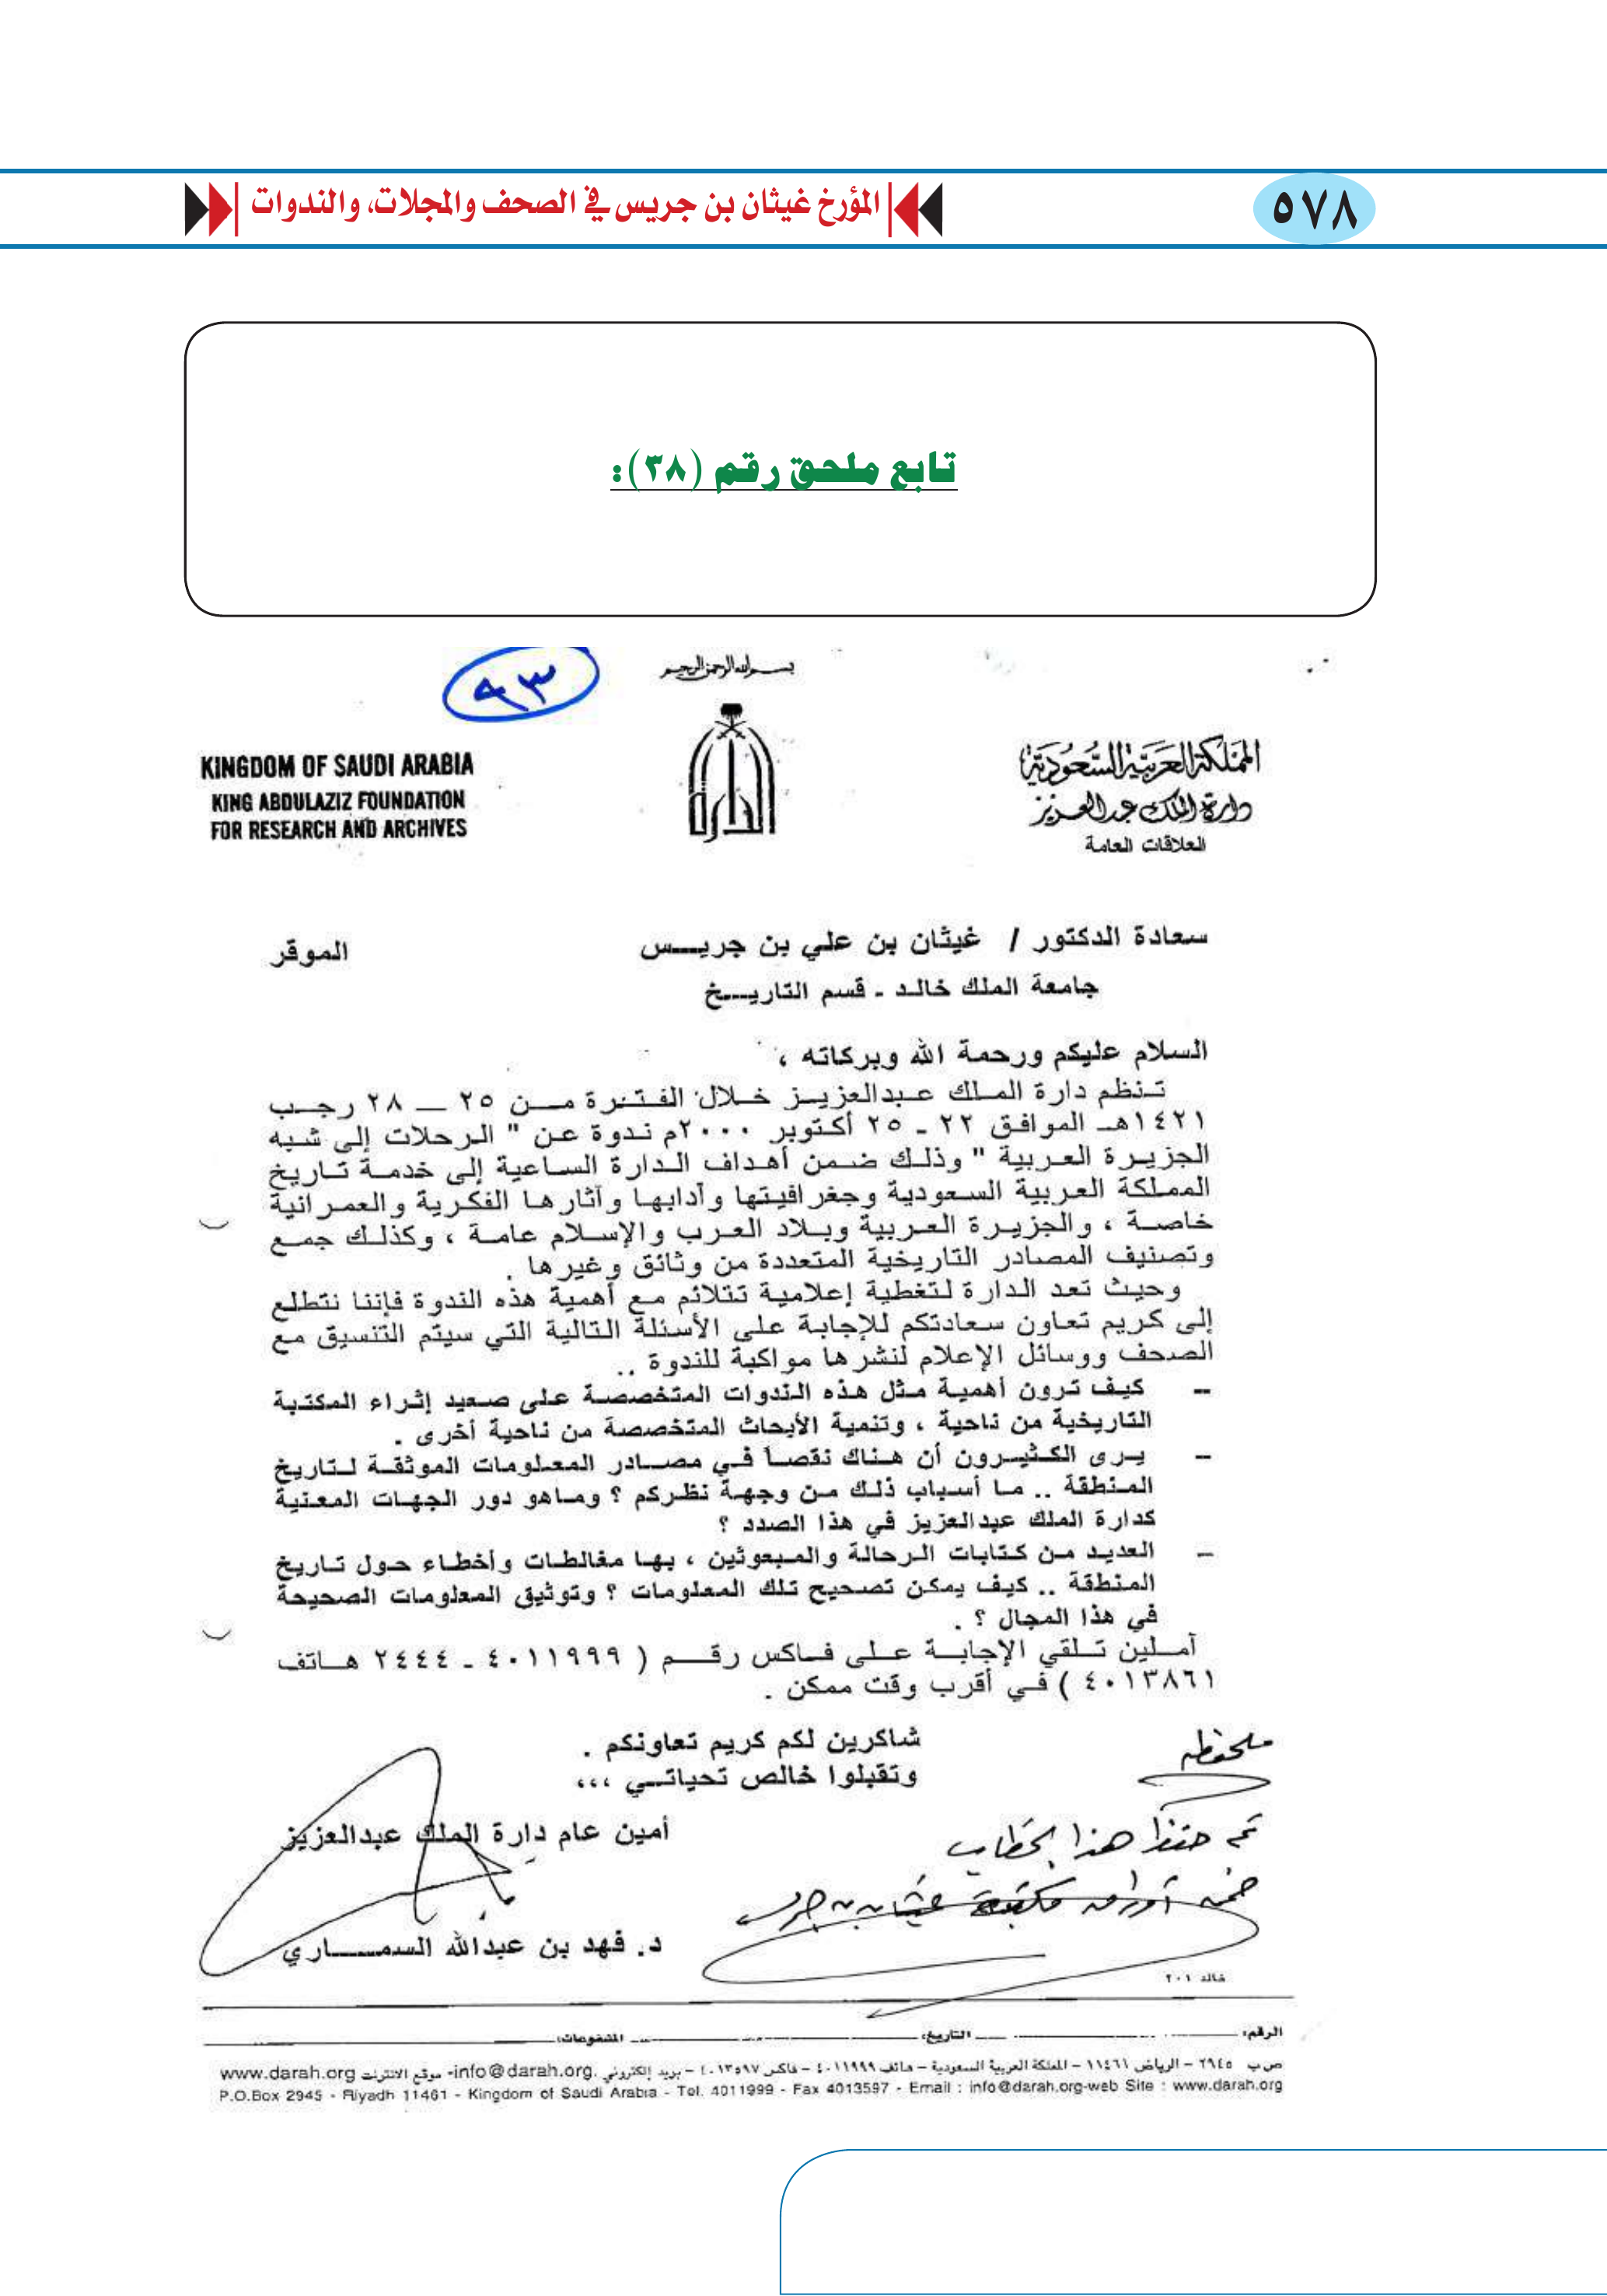 ٥٧٨
المؤرخ غيثان بن جريس في الصحف والمجلات، والندوات
تابع ملحق رقم (٣٨):
٩٣
بسم الله الرحمن الرحيم
KINGDOM OF SAUDI ARABIA
KING ABDULAZIZ FOUNDATION
FOR RESEARCH AND ARCHIVES
الدارة
المملكة العربية السعودية
دارة الملك عبدالعزيز
العلاقات العامة
سعادة الدكتور / غيثان بن علي بن جريـــس الموقر
جامعة الملك خالد ـ قسم التاريـــخ
السلام عليكم ورحمة الله وبركاته ،
تـنظم دارة الملك عبدالعزيـز خـلال الفـتـرة مـــن ٢٥ ـــ ٢٨ رجــب
١٤٢١هـ الموافق ٢٢ ـ ٢٥ أكتوبر ٢٠٠٠م ندوة عن " الرحلات إلى شبه
الجزيـرة العـربية " وذلـك ضـمن أهـداف الـدارة الساعية إلى خدمـة تـاريخ
المملكة العربية السعودية وجغرافيتها وآدابها وآثارها الفكرية والعمرانية
خاصـة ، والجزيـرة العربية وبـلاد العـرب والإسـلام عامـة ، وكذلـك جمـع
وتصنيف المصادر التاريخية المتعددة من وثائق وغيرها .
وحيث تعد الدارة لتغطية إعلامية تتلائم مع أهمية هذه الندوة فإننا نتطلع
إلى كريم تعاون سعادتكم للإجابة على الأسئلة التالية التي سيتم التنسيق مع
الصحف ووسائل الإعلام لنشرها مواكبة للندوة ..
– كيف ترون أهمية مثل هذه الندوات المتخصصة على صعيد إثراء المكتبة
التاريخية من ناحية ، وتنمية الأبحاث المتخصصة من ناحية أخرى .
– يـرى الكـثيـرون أن هـناك نقصـاً فـي مصــادر المعلومات الموثقـة لـتاريخ
المـنطقة .. مـا أسـباب ذلـك مـن وجهـة نظـركم ؟ ومـاهو دور الجهـات المعـنية
كدارة الملك عبدالعزيز في هذا الصدد ؟
– العديـد مـن كـتابات الـرحالة والمـبعوثين ، بهـا مغالطـات وأخطـاء حـول تـاريخ
المـنطقة .. كيف يمكن تصحيح تلك المعلومات ؟ وتوثيق المعلومات الصحيحة
في هذا المجال ؟ .
آمــلين تــلقي الإجابــة عــلى فــاكس رقــم ( ٤٠١١٩٩٩ ـ ٢٤٤٤ هــاتف
٤٠١٣٨٦١ ) فـي أقرب وقت ممكن .
شاكرين لكم كريم تعاونكم .
وتقبلوا خالص تحياتــي ،،،
ملحوظه
أمين عام دارة الملك عبدالعزيز
تم حفظ هذا الخطاب
ضمن أوراق مكتبة غيثان بن جريس
د. فهد بن عبدالله السمـــــاري
خالد ٢٠١
الرقم: التاريخ: المشفوعات:
ص ب ٢٩٤٥ – الرياض ١١٤٦١ – المملكة العربية السعودية – هاتف ٤٠١١٩٩٩ – فاكس ٤٠١٣٥٩٧ – بريد إلكتروني info@darah.org. - موقع الانترنت www.darah.org
P.O.Box 2945 - Riyadh 11461 - Kingdom of Saudi Arabia - Tel. 4011999 - Fax 4013597 - Email : info@darah.org-web Site : www.darah.org